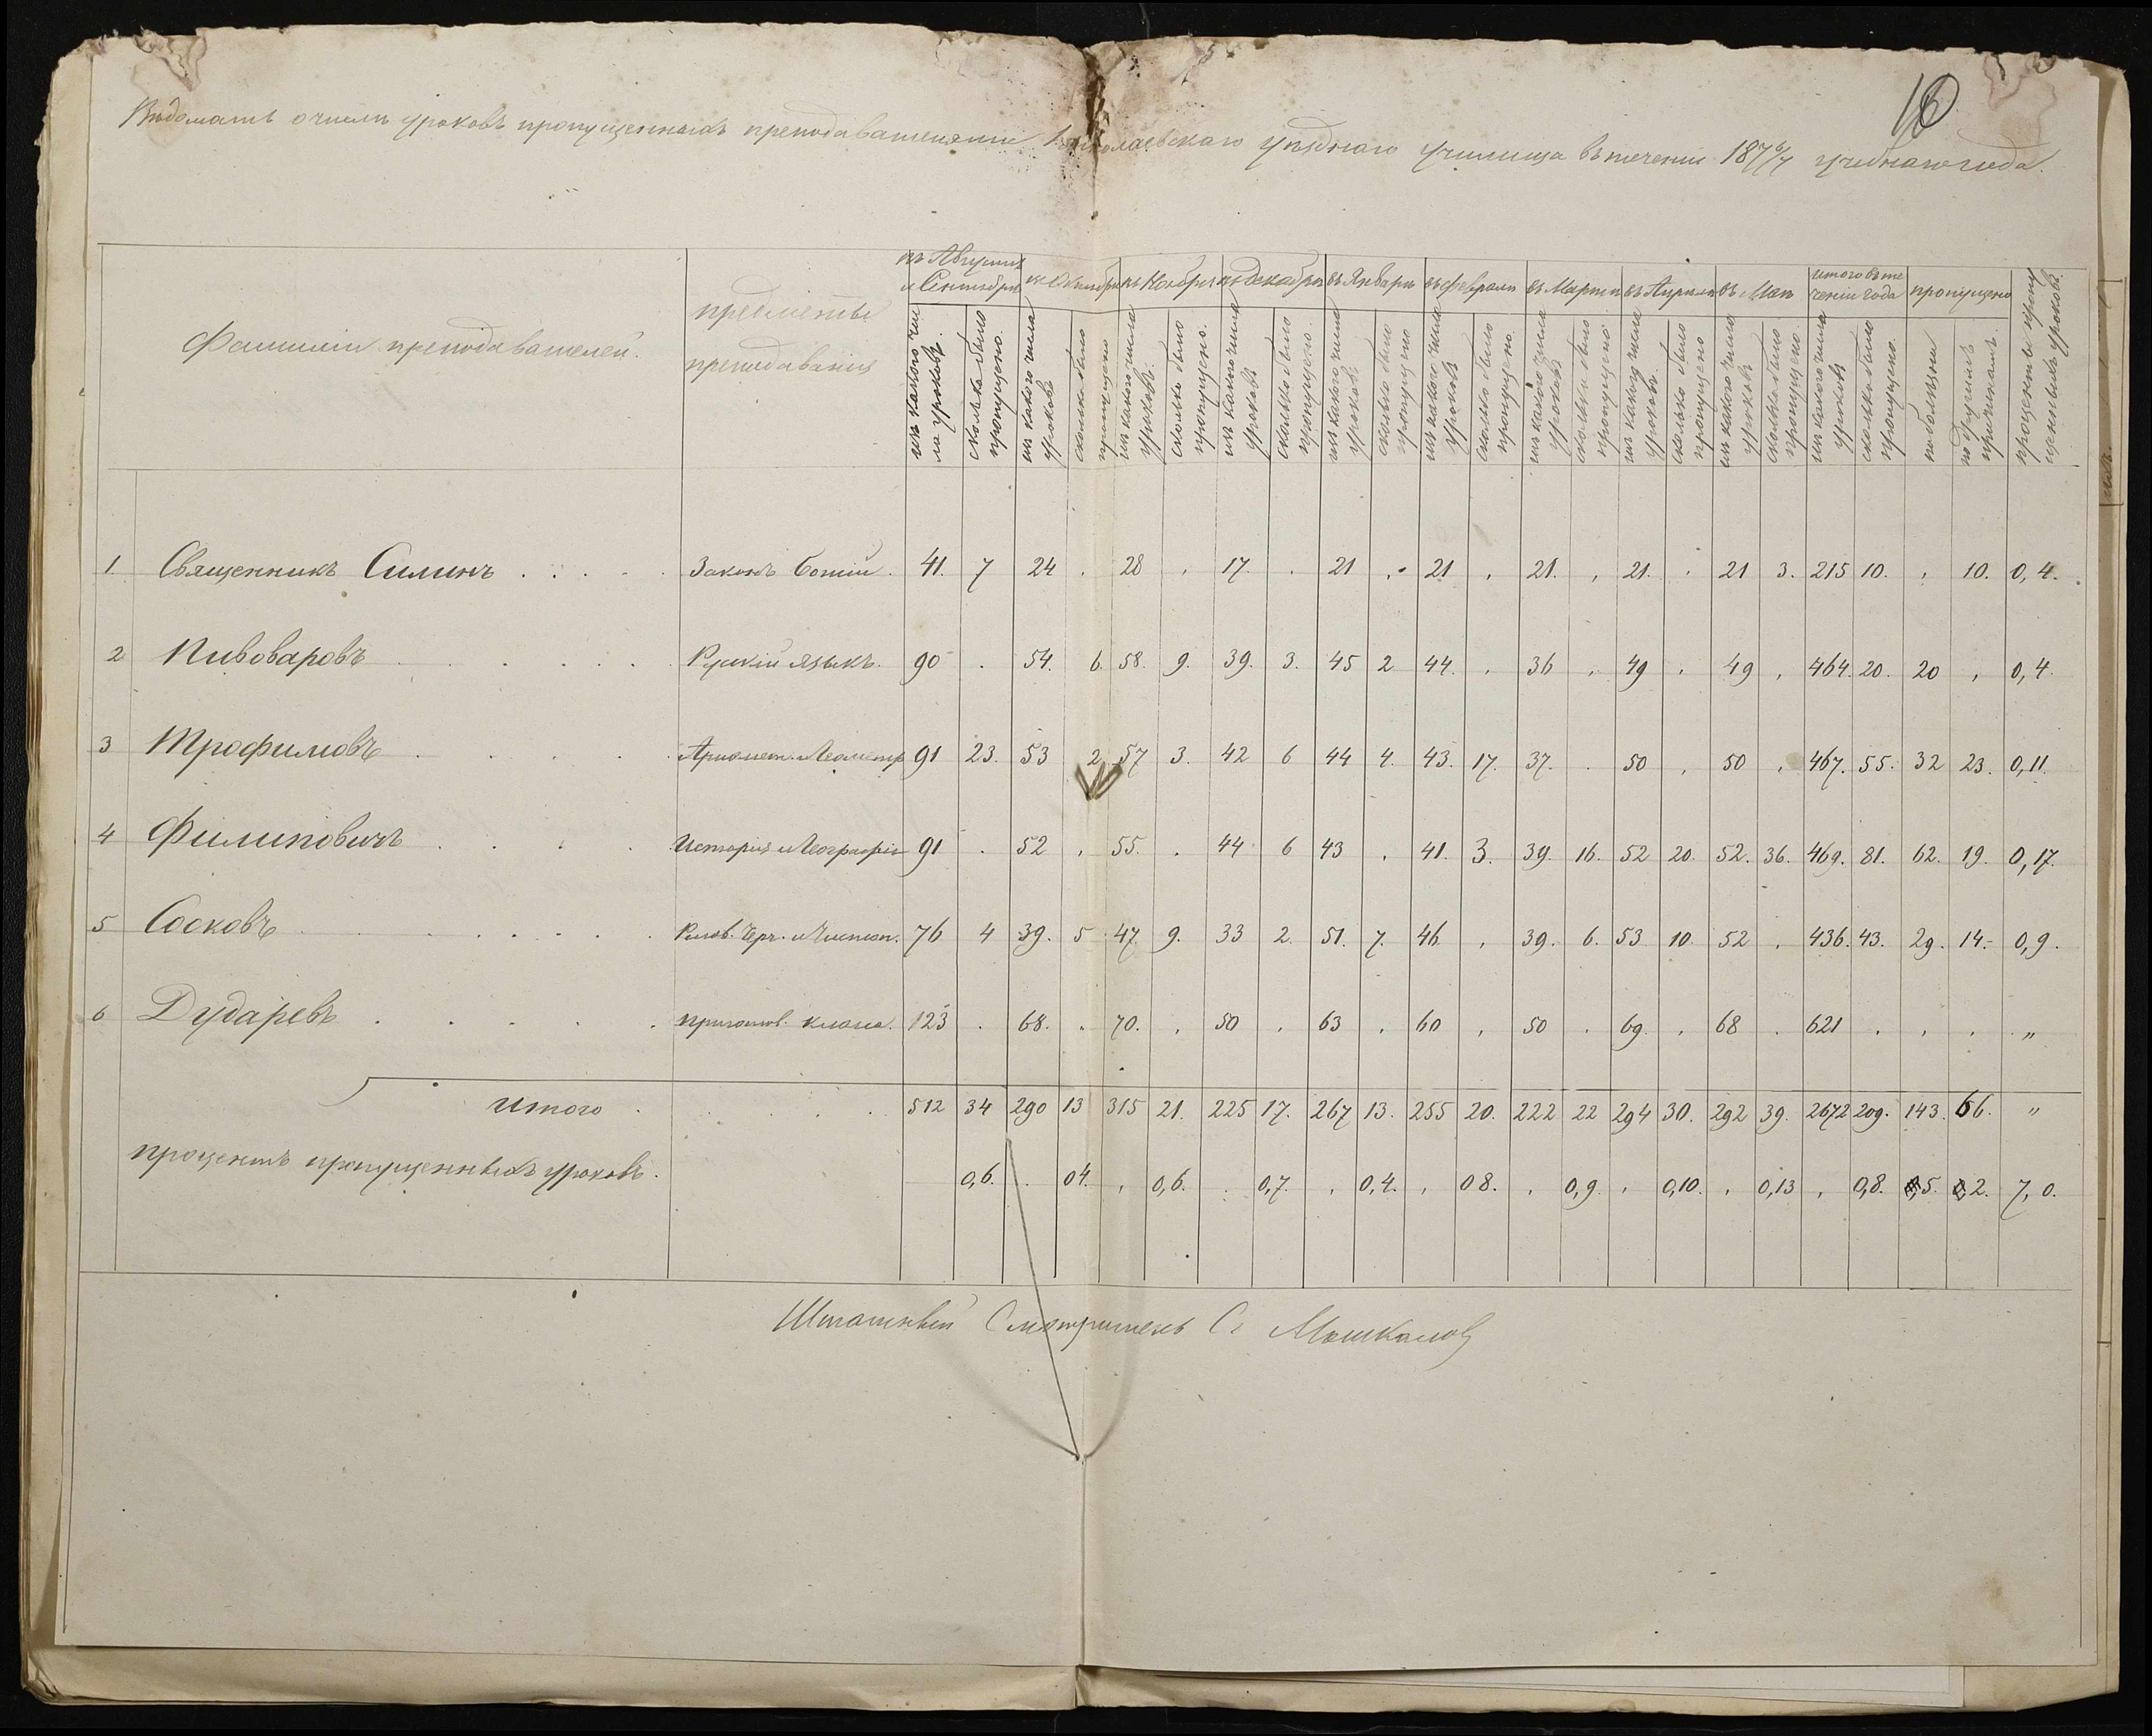 10
Вѣдомость о числѣ уроковъ пропущенныхъ преподавателями Николаевскаго уѣзднаго училища въ теченіи 187 6/7 учебнаго года.
Фамиліи преподавателей.
предметы
преподаванія
въ Августѣ
и Сентябрѣ
въ Октябрѣ
въ Ноябрѣ
въ Декабрѣ
въ Январѣ
въ Февралѣ
въ Мартѣ
въ Апрѣлѣ
въ Маѣ
итого въ те
ченіи года
пропущено
изъ какого чи
ла уроковъ.
сколько было
пропущено.
изъ какого числа
уроковъ
сколько было
пропущено
изъ какого числа
уроковъ.
сколько было
пропущено.
изъ какого числа
уроковъ
сколько было
пропущено.
изъ какого числа
уроковъ
сколько было
пропущено
изъ какого числа
уроковъ
сколько было
пропущено.
изъ какого числа
уроковъ
сколько было
пропущено.
изъ какого числа
уроковъ.
сколько было
пропущено
изъ какого числа
уроковъ
сколько было
пропущено.
изъ какого числа
уроковъ
сколько было
пропущено.
по болѣзни
по другимъ
причинамъ.
проценты пропу
щенныхъ уроковъ.
1. Священникъ Силинъ . . . . . Законъ Божій. 41. 7 24 . 28 . 17. . 21 . 21 . 21. . 21. . 21 3. 215 10. . 10. 0,4.
2 Пивоваровъ . . . . . . Рускій языкъ. 90 . 54. 6. 58. 9. 39. 3. 45 2 44. . 36 . 49 . 49 . 464. 20. 20 . 0,4.
3 Трофимовъ . . . . Ариѳмет. и Геометр 91 23. 53 2 57 3. 42 6 44 4. 43. 17. 37. . 50 . 50 . 467. 55. 32 23. 0,11.
4 Филиповичъ . . . . Исторія и Географія 91 . 52 . 55. . 44 6 43 . 41. 3. 39. 16. 52 20. 52. 36. 469. 81. 62. 19. 0,17.
5 Сосковъ . . . . . . Рисов. Черч. и Чистоп. 76 4 39. 5 47. 9. 33 2. 51. 7. 46. . 39. 6. 53 10. 52 . 436. 43. 29. 14.- 0,9.
6 Дударевъ . . . . . приготов. класса. 123 . 68. . 70. . 50 . 63 . 60 . 50 . 69. . 68 . 621 . . . "
Итого . . . . . 512 34 290 13 315 21. 225 17. 267 13. 255 20. 222 22 294 30. 292 39. 2672 209. 143. 66. "
процентъ пропущенныхъ уроковъ. 0,6. . 04. . 0,6. . 0,7. . 0,4. . 08. . 0,9. . 0,10. . 0,13 . 0,8. 0,5. 0,2. 7,0.
Штатный Смотритель С. Мошкалов